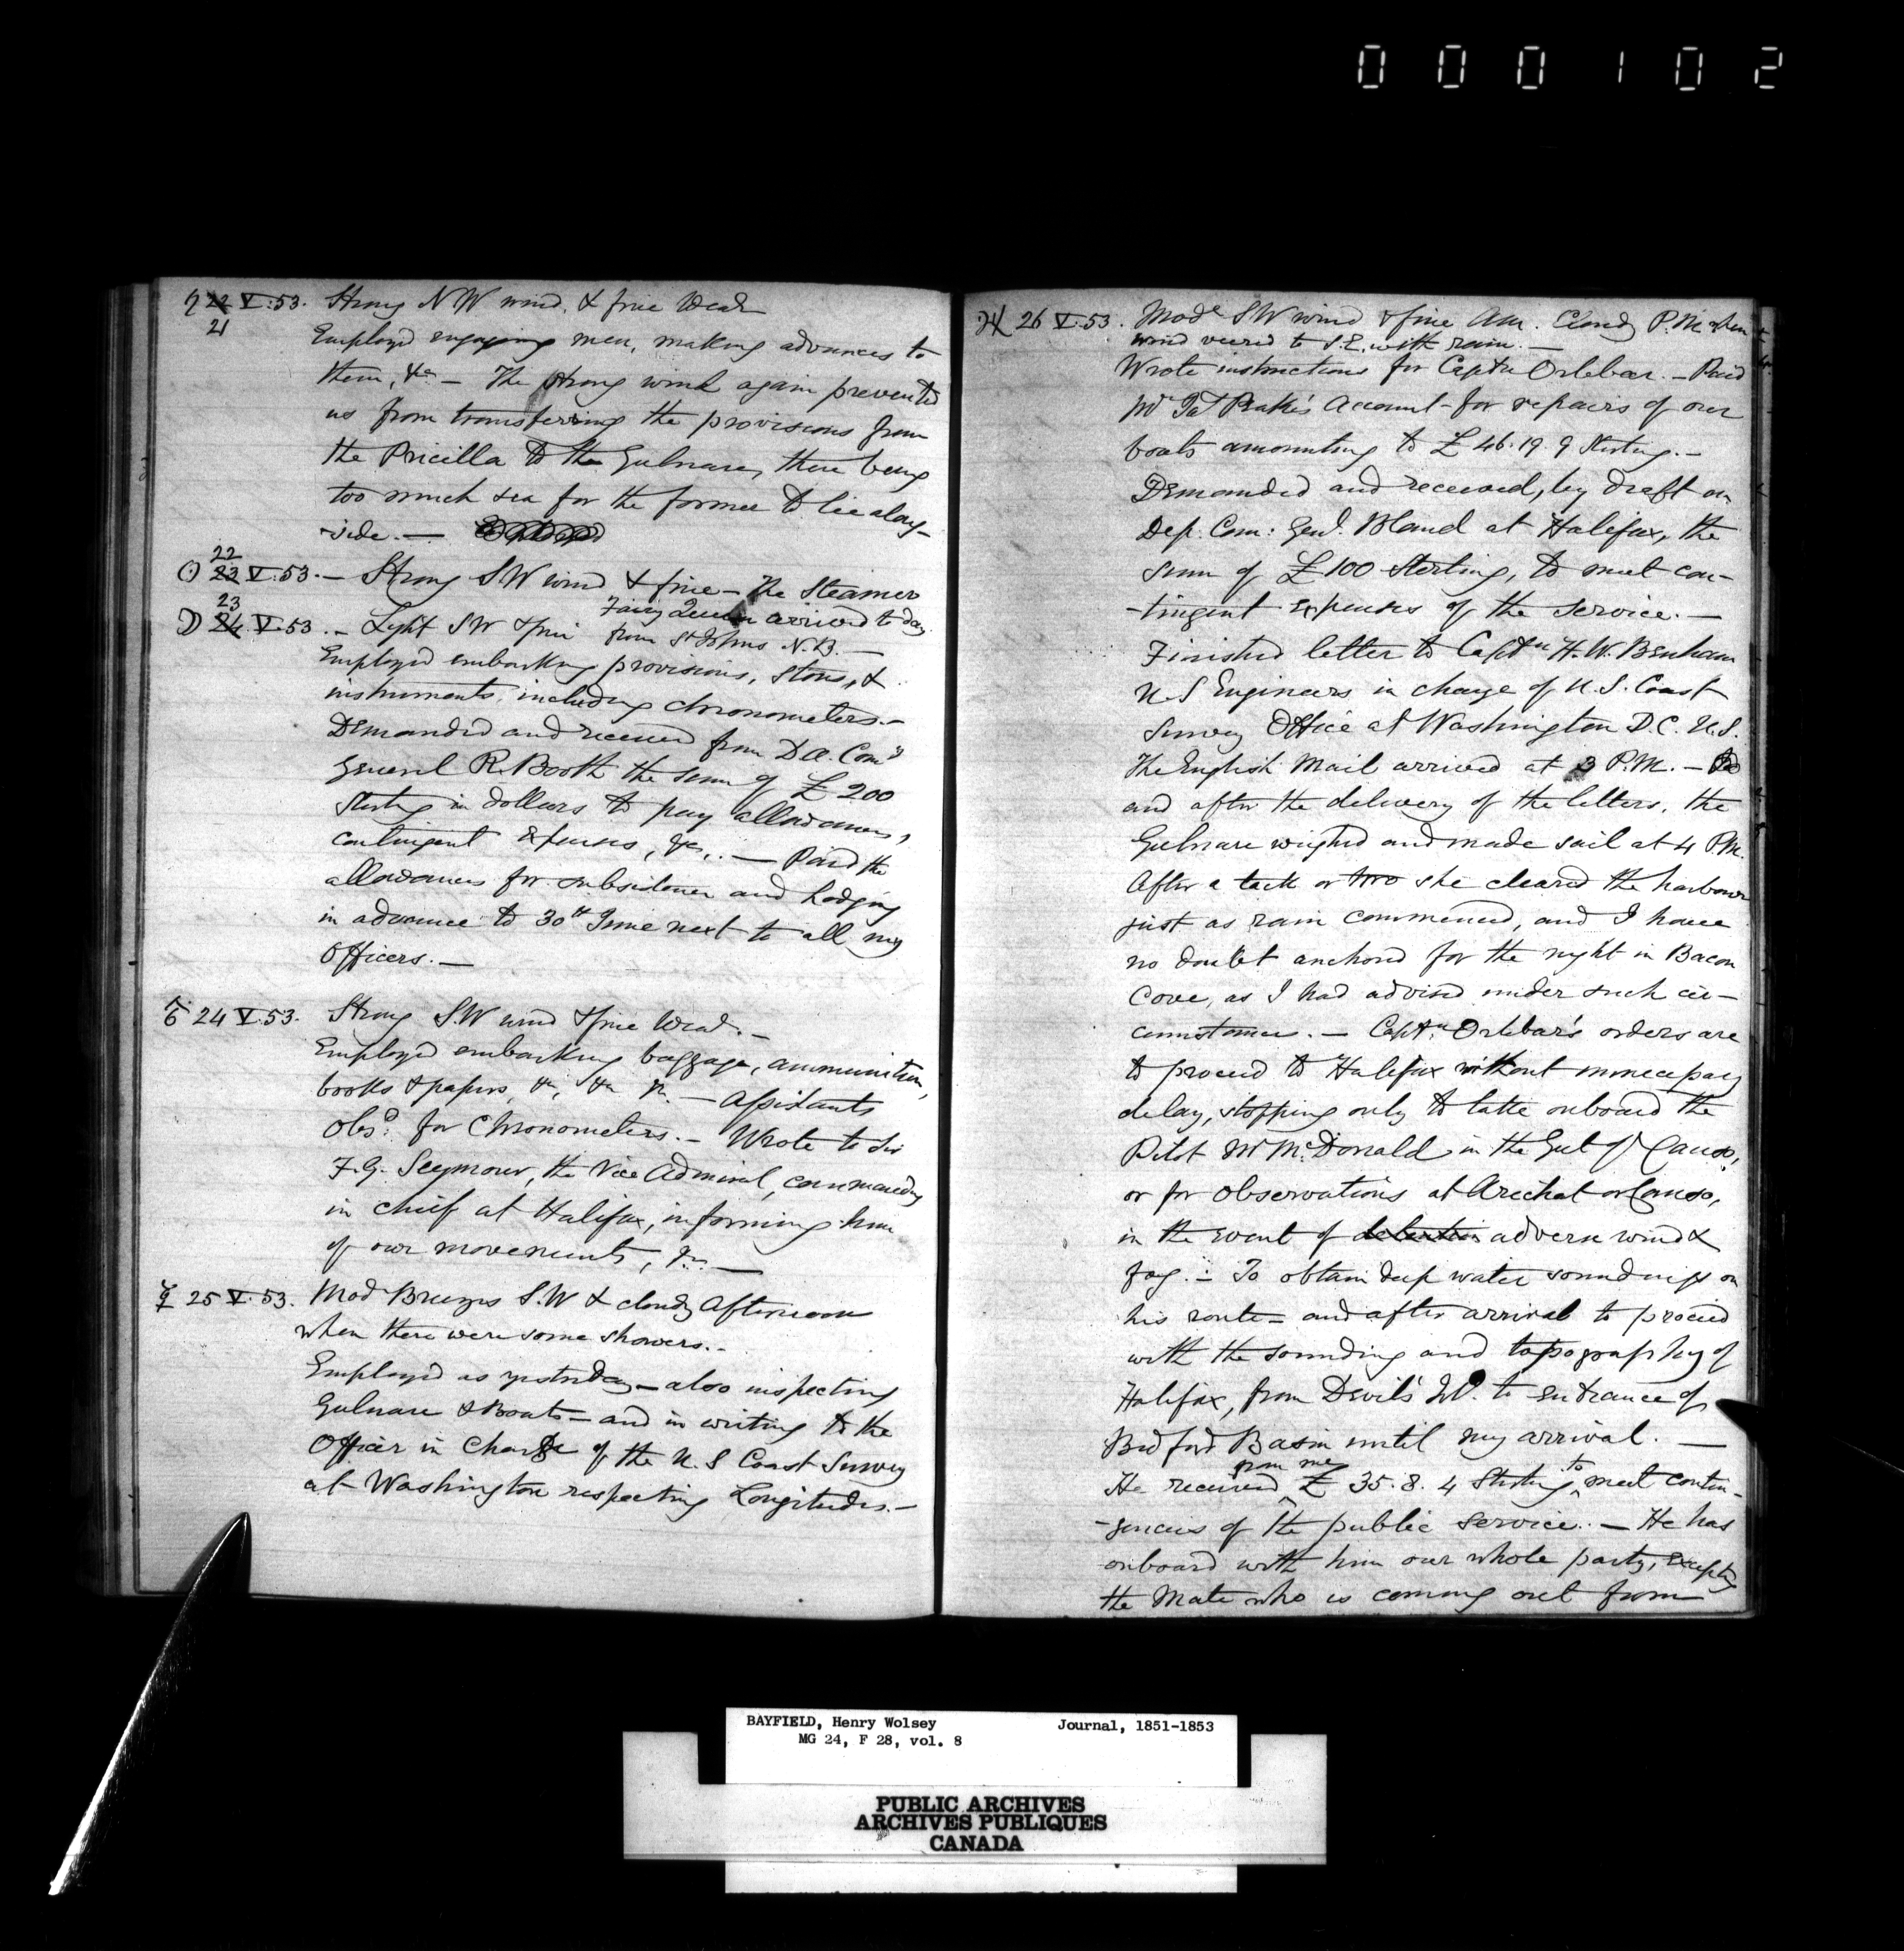 000102
♄ 22 V.53. Strong NW wind, & fine Wear
21
Employed engaging men, making advances to
them, &c. — The strong wind again prevented
us from transferring the provisions from
the Pricilla to the Gulnare, there being
too much sea for the former to lie along-
-side. —
22
☉ 23 V.53. — Strong SW wind & fine — The Steamer
Fairy Queen arrived to day
from St Johns N.B. —
23
☽ 24 V.53. — Light SW & fine
Employed embarking provisions, stores, &
instruments, including chronometers. —
Demanded and received from Com
General R. Booth the sum of £200
Sterling in dollars to pay allowances,
contingent expenses, &c,. — Paid the
allowances for subsistence and Lodging
in advance to 30th June next to all my
Officers. —
♂ 24 V.53. Strong S.W wind & fine Wear. —
Employed embarking baggage, ammunition,
books & papers, &c, &c &c. — Assistants
Obsd: for Chronometers. — Wrote to Sir
F.G. Seymour, the Vice Admiral, commanding
in chief at Halifax, informing him
of our movements, &c. —
☿ 25 V.53. Mod Breezes S.W & cloudy Afternoon
when there were some showers. -
Employed as yesterday — also inspecting
Gulnare & Boats — and in writing to the
Officer in Charge of the U.S Coast Survey
at Washington respecting Longitudes. —
♃ 26 V.53. Mode SW wind & fine AM. Cloudy P.M when
wind veered to S.E. with rain. —
Wrote instructions for Captn Orlebar. — Paid
Mr Peake's Account for repairs of our
boats amounting to £46.19.9 Sterling. —
Demanded and received, by draft on
Dep. Com: Genl. Bland at Halifax, the
sum of £100 Sterling, to meet con-
-tingent expenses of the service. —
Finished letter to Captn H.W. Benham
U S Engineers in charge of U.S. Coast
Survey Office at Washington D.C. U.S.
The English Mail arrived at 3 P.M. —
and after the delivery of the letters, the
Gulnare weighed and made sail at 4 P.M.
After a tack or two she cleared the harbour
just as rain commenced, and I have
no doubt anchored for the night in Bacon
Cove, as I had advised under such cir-
cumstances. — Captn. Orlebar's orders are
to proceed to Halifax without unnecessary
delay, stopping only to take onboard the
Pilot Mr McDonald in the Gut of Canso,
or for observations at Arichat or Canso,
in the event of detention adverse wind &
fog. — To obtain deep water soundings on
his route — and after arrival to proceed
with the sounding and topography of
Halifax, from Devil's Id. to entrance of
Bedford Basin until my arrival. —
from me to
He received £35.8.4 Sterling meet contin-
-gencies of the public service. — He has
onboard with him our whole party, excepting
the Mate who is coming out from
BAYFIELD, Henry Wolsey Journal, 1851-1853
MG 24, F 28, vol. 8
PUBLIC ARCHIVES
ARCHIVES PUBLIQUES
CANADA